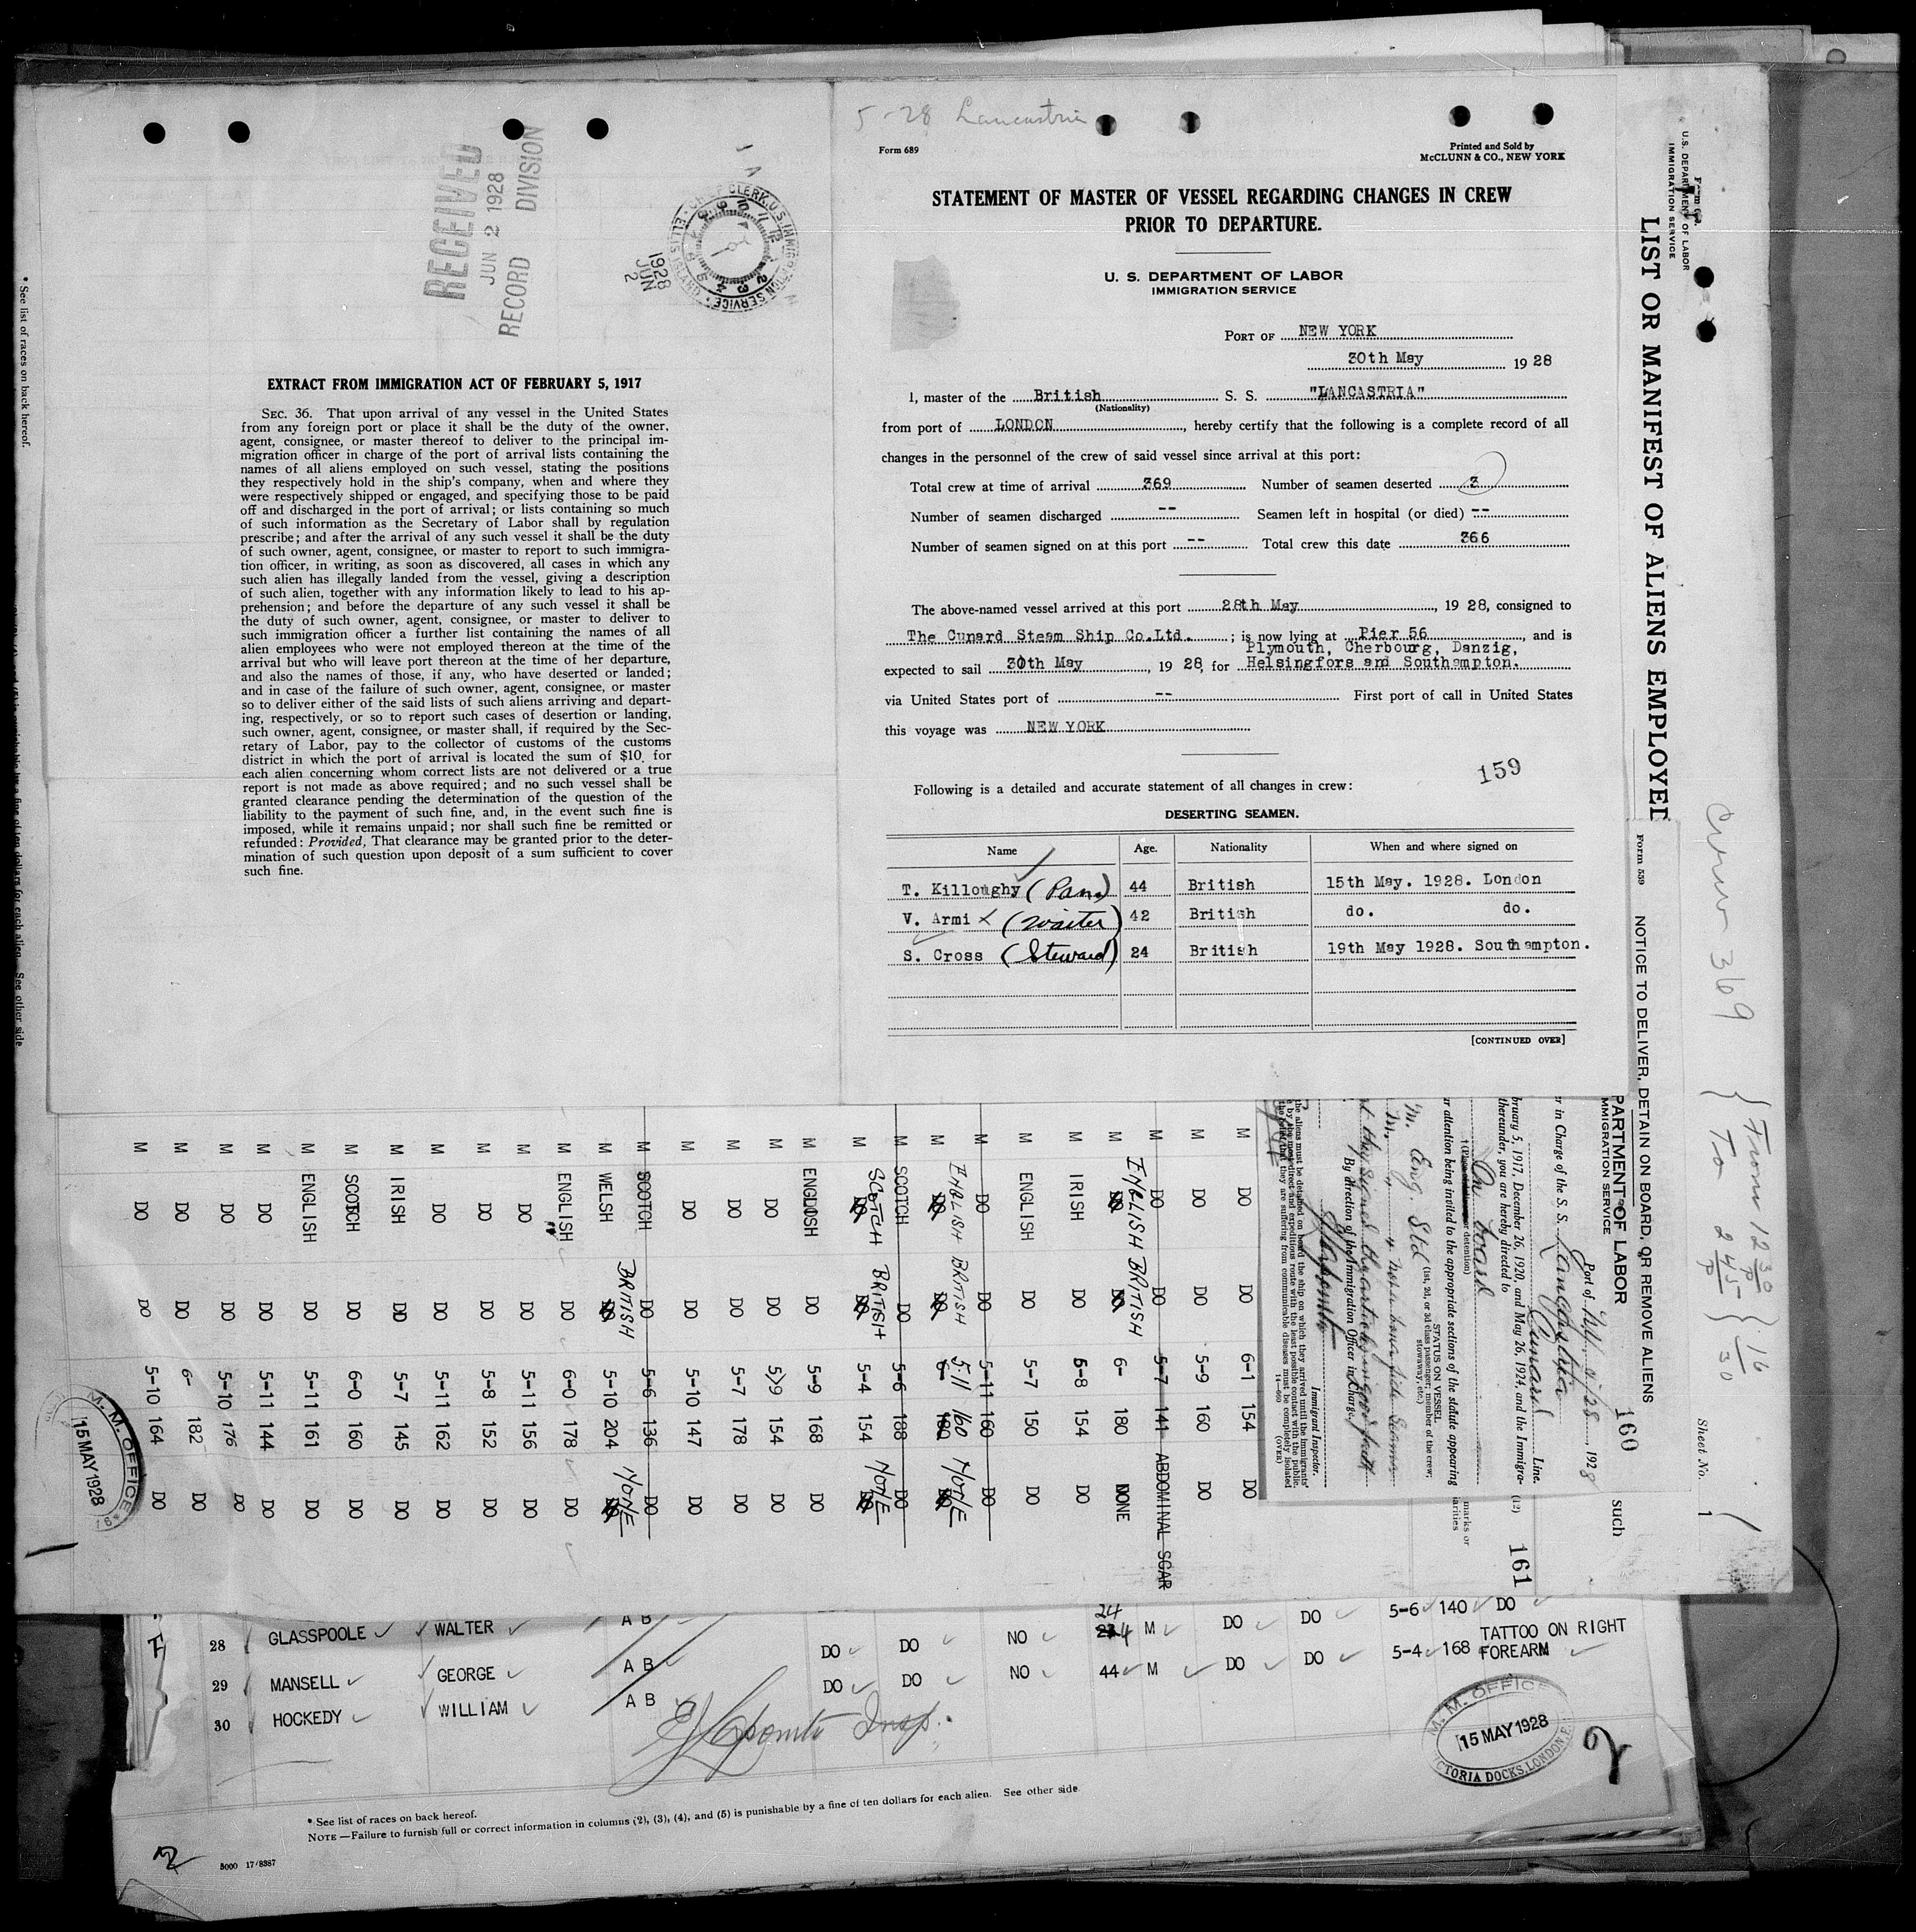 5-28 Lancastria
Form 689
Printed and Sold by
McCLUNN & CO., NEW YORK
STATEMENT OF MASTER OF VESSEL REGARDING CHANGES IN CREW
PRIOR TO DEPARTURE.
U. S. DEPARTMENT OF LABOR
IMMIGRATION SERVICE
PORT OF NEW YORK
30th May 1928
I, master of the British S. S. "LANCASTRIA"
(Nationality)
from port of LONDON, hereby certify that the following is a complete record of all
changes in the personnel of the crew of said vessel since arrival at this port:
Total crew at time of arrival 369 Number of seamen deserted 3
Number of seamen discharged -- Seamen left in hospital (or died) --
Number of seamen signed on at this port -- Total crew this date 366
The above-named vessel arrived at this port 28th May, 1928, consigned to
The Cunard Steam Ship Co.Ltd. ; is now lying at Pier 56, and is
Plymouth, Cherbourg, Danzig,
expected to sail 30th May, 1928, for Helsingfors and Southampton.
via United States port of -- First port of call in United States
this voyage was NEW YORK
159
Following is a detailed and accurate statement of all changes in crew:
DESERTING SEAMEN.
Name Age. Nationality When and where signed on
T. Killoughy (Pans) 44 British 15th May. 1928. London
V. Armi (Waiter) 42 British do. do.
S. Cross (Steward) 24 British 19th May 1928. Southampton.
[CONTINUED OVER]
RECEIVED
JUN 2 1928
RECORD DIVISION
CHIEF CLERK, U.S. IMMIGRATION SERVICE
1928
JUN
2
EXTRACT FROM IMMIGRATION ACT OF FEBRUARY 5, 1917
SEC. 36. That upon arrival of any vessel in the United States
from any foreign port or place it shall be the duty of the owner,
agent, consignee, or master thereof to deliver to the principal im-
migration officer in charge of the port of arrival lists containing the
names of all aliens employed on such vessel, stating the positions
they respectively hold in the ship's company, when and where they
were respectively shipped or engaged, and specifying those to be paid
off and discharged in the port of arrival; or lists containing so much
of such information as the Secretary of Labor shall by regulation
prescribe; and after the arrival of any such vessel it shall be the duty
of such owner, agent, consignee, or master to report to such immigra-
tion officer, in writing, as soon as discovered, all cases in which any
such alien has illegally landed from the vessel, giving a description
of such alien, together with any information likely to lead to his ap-
prehension; and before the departure of any such vessel it shall be
the duty of such owner, agent, consignee, or master to deliver to
such immigration officer a further list containing the names of all
alien employees who were not employed thereon at the time of the
arrival but who will leave port thereon at the time of her departure,
and also the names of those, if any, who have deserted or landed;
and in case of the failure of such owner, agent, consignee, or master
so to deliver either of the said lists of such aliens arriving and depart-
ing, respectively, or so to report such cases of desertion or landing,
such owner, agent, consignee, or master shall, if required by the Sec-
retary of Labor, pay to the collector of customs of the customs
district in which the port of arrival is located the sum of $10 for
each alien concerning whom correct lists are not delivered or a true
report is not made as above required; and no such vessel shall be
granted clearance pending the determination of the question of the
liability to the payment of such fine, and, in the event such fine is
imposed, while it remains unpaid; nor shall such fine be remitted or
refunded: Provided, That clearance may be granted prior to the deter-
mination of such question upon deposit of a sum sufficient to cover
such fine.
* See list of races on back hereof.
See other side
U.S. DEPARTMENT OF LABOR
IMMIGRATION SERVICE
LIST OR MANIFEST OF ALIENS EMPLOYED
Sheet No. 1
Crew 369
From 12 30 P
To 2 45 P
such
Form 559
NOTICE TO DELIVER, DETAIN ON BOARD, OR REMOVE ALIENS
160
PARTMENT OF LABOR
IMMIGRATION SERVICE
Port of N.Y. 5/28, 1928
r in Charge of the S. S. Lancastria
Cunard Line.
(12)
bruary 5, 1917, December 26, 1920, and May 26, 1924, and the Immigra-
thereunder, you are hereby directed to
On board
ar attention being invited to the appropriate sections of the statute appearing
STATUS ON VESSEL
(1st, 2d, or 3d class passenger; member of the crew;
stowaway, etc.)
M. Eng. Std
By direction of the Immigration Officer in Charge,
Immigrant Inspector.
14—660 (OVER)
161
M DO DO 6-1 154 DO
M DO DO 5-9 160 DO
M DO DO 5-7 141 ABDOMINAL SCAR
M ENGLISH BRITISH 6- 180 NONE
M IRISH DO 5-8 154 DO
M ENGLISH DO 5-7 150 DO
M DO DO 5-11 160 DO
M ENGLISH BRITISH 5-11 160 NONE
M SCOTCH DO 5-6 188 DO
M SCOTCH BRITISH 5-4 154 NONE
M ENGLISH DO 5-9 168 DO
M DO DO 5-9 154 DO
M DO DO 5-7 178 DO
M DO DO 5-10 147 DO
M SCOTCH DO 5-6 136 DO
M WELSH BRITISH 5-10 204 NONE
M ENGLISH DO 6-0 178 DO
M DO DO 5-11 156 DO
M DO DO 5-8 152 DO
M DO DO 5-11 162 DO
M IRISH DO 5-7 145 DO
M SCOTCH DO 6-0 160 DO
M ENGLISH DO 5-11 161 DO
M DO DO 5-11 144 DO
M DO DO 5-10 176 DO
M DO DO 6- 182 DO
M DO DO 5-10 164 DO
M. M. OFFICE
15 MAY 1928
28 GLASSPOOLE WALTER A B DO DO NO 24 M DO DO 5-6 140 DO
29 MANSELL GEORGE A B DO DO NO 44 M DO DO 5-4 168 TATTOO ON RIGHT FOREARM
30 HOCKEDY WILLIAM A B
Insp.
M. M. OFFICE
15 MAY 1928
VICTORIA DOCKS, LONDON, E.
2
* See list of races on back hereof.
NOTE—Failure to furnish full or correct information in columns (2), (3), (4), and (5) is punishable by a fine of ten dollars for each alien. See other side.
2
5000 17/8387